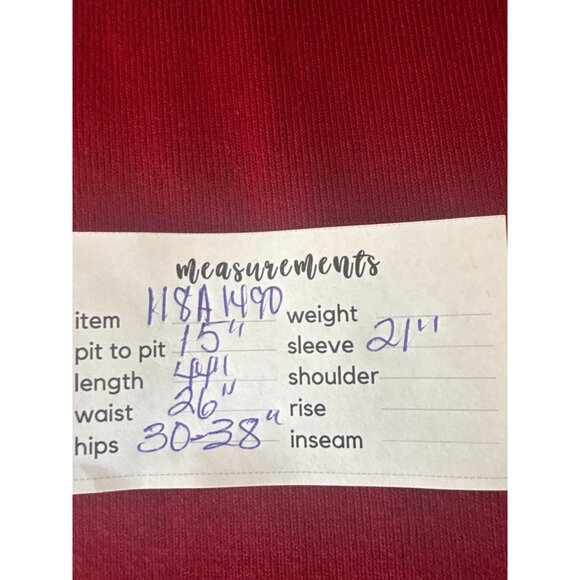 measurements
item 118A1490 weight
pit to pit 15" sleeve 21"
length 44" shoulder
waist 26" rise
hips 30-38" inseam